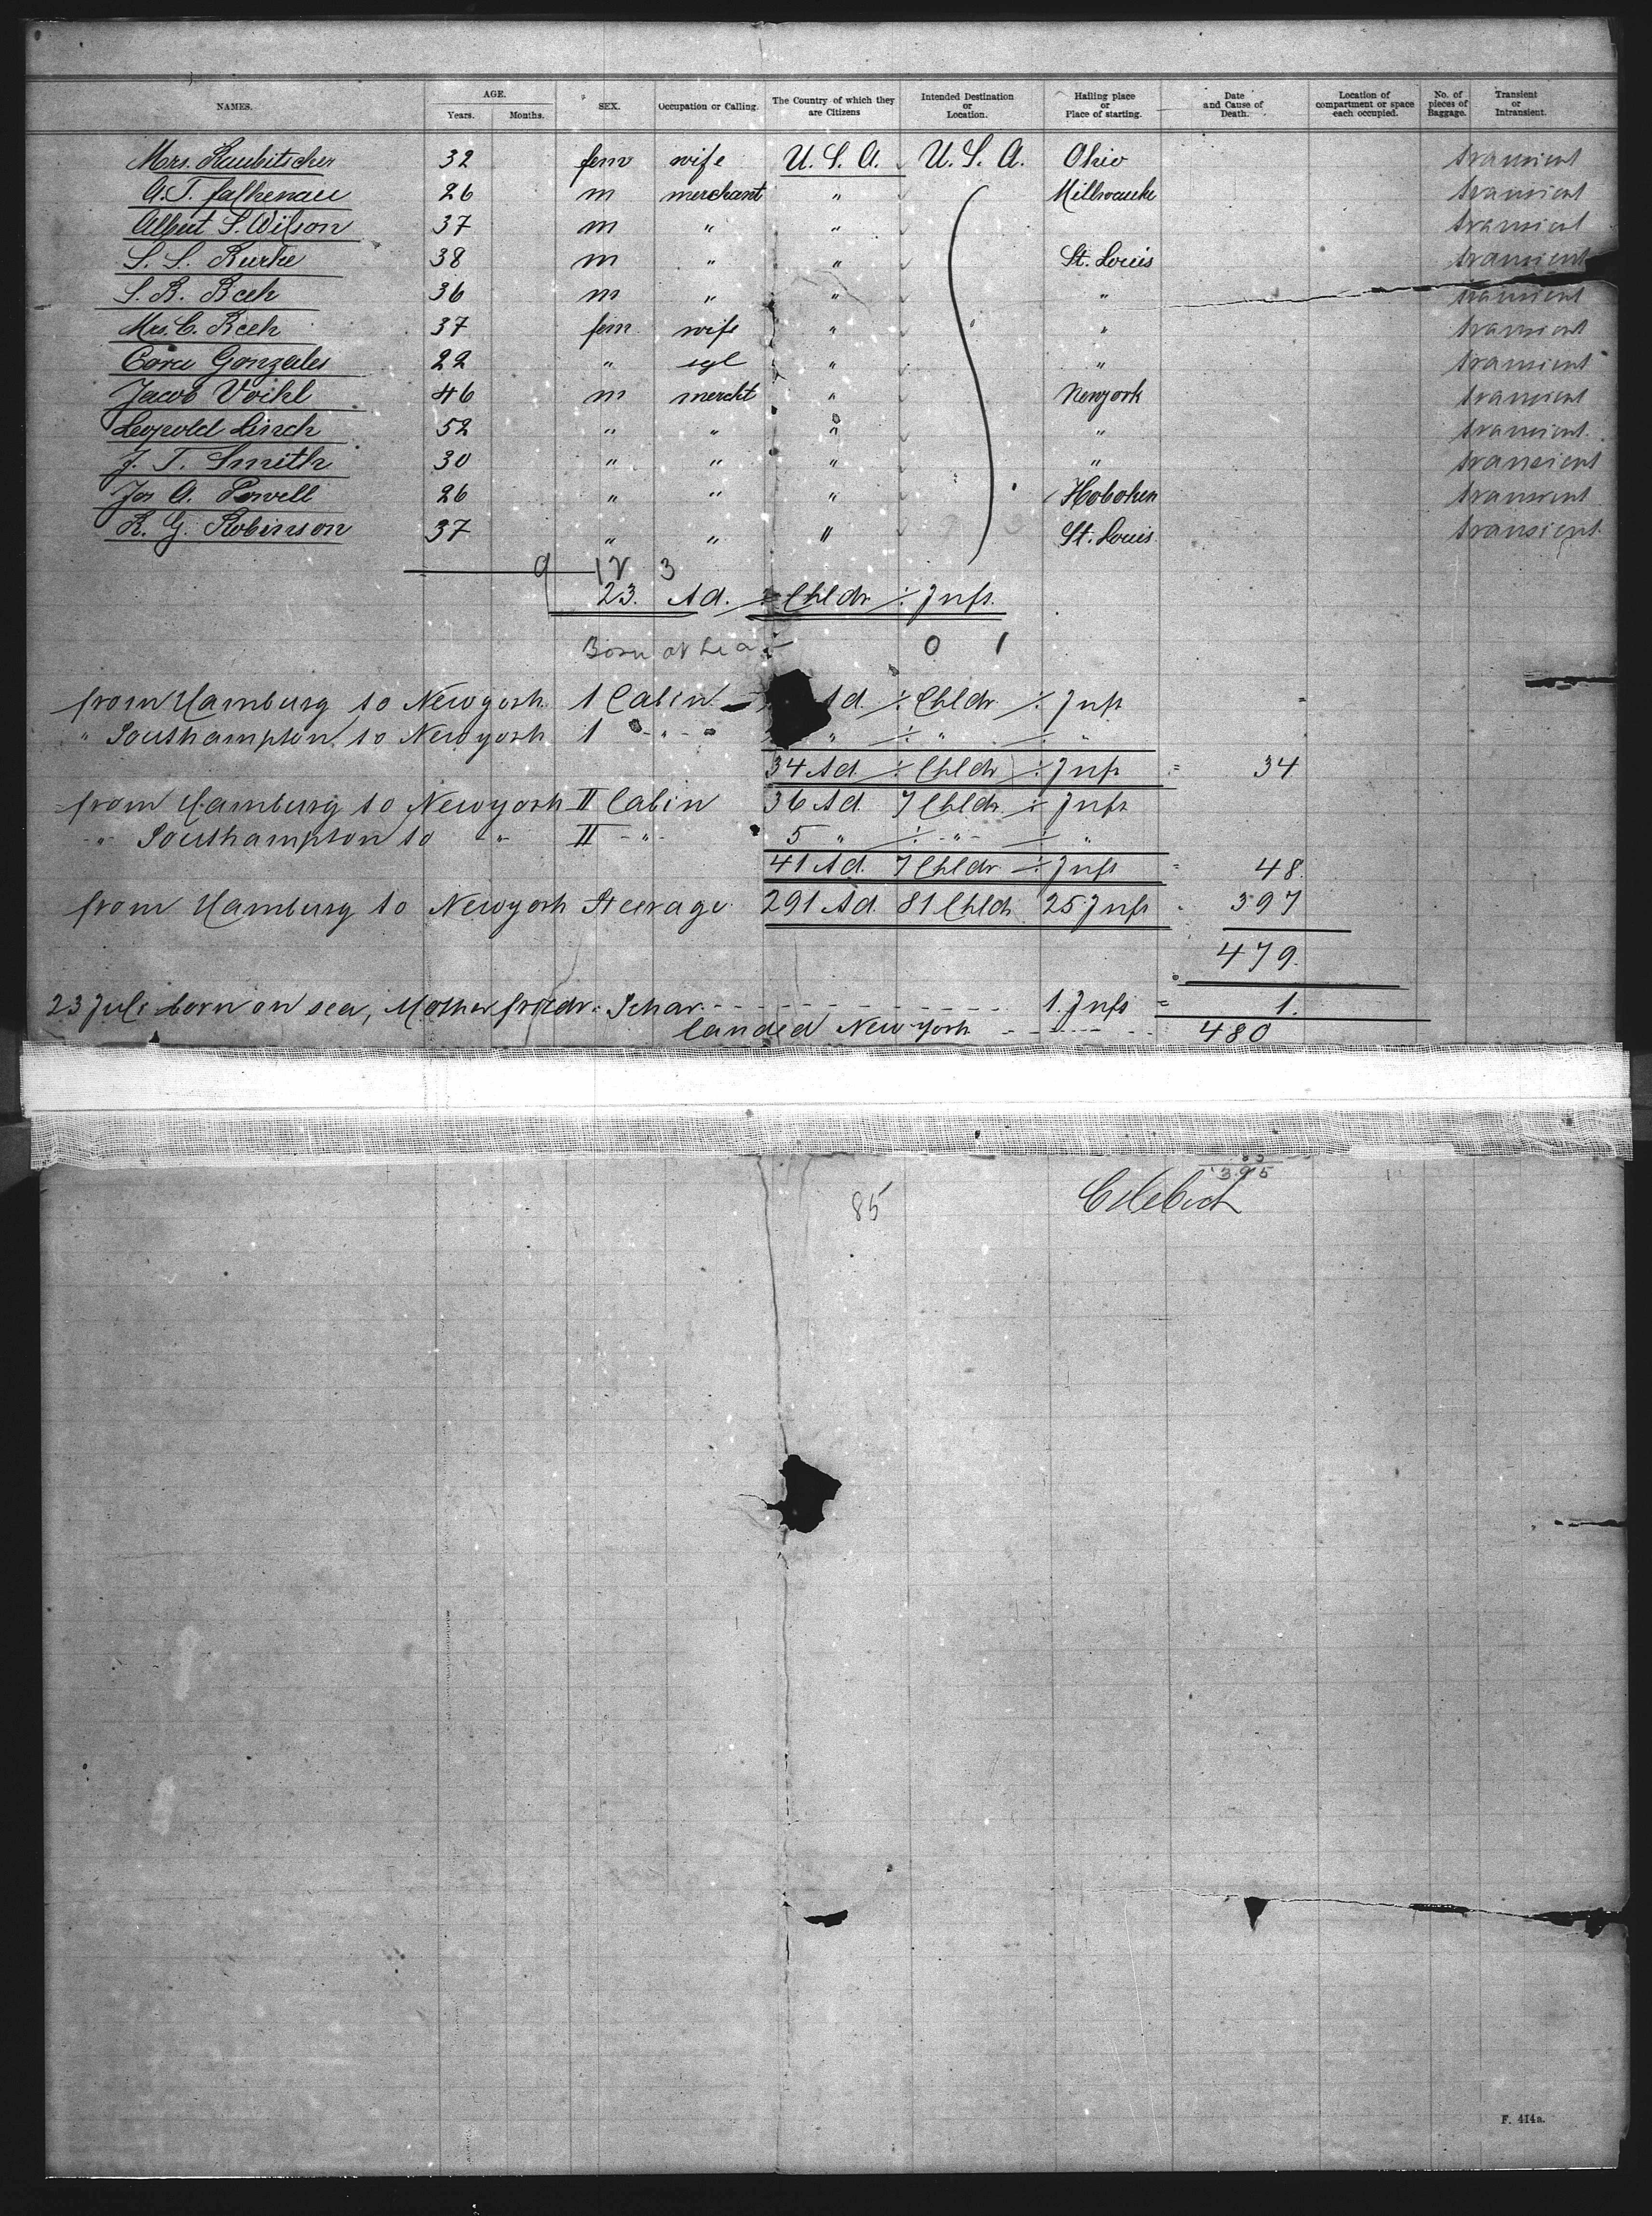 NAMES. AGE. Years. Months. SEX. Occupation or Calling. The Country of which they are Citizens Intended Destination or Location. Hailing place or Place of starting. Date and Cause of Death. Location of compartment or space each occupied. No. of pieces of Baggage. Transient or Intransient.
Mrs. Raubitscher 32 fem wife U. S. A. U. S. A. Ohio transient
A. T. falkenau 26 m merchant " Millwauke transient
Albert S. Wilson 37 m " " transient
S. S. Burke 38 m " " St. Louis transient
S. B. Beck 36 m " " " transient
Mrs. C. Beck 37 fem wife " " transient
Cora Gonzales 22 " sgl " " transient
Jacob Voihl 46 m mercht " Newyork transient
Leopold Linch 52 " " " " transient
J. T. Smith 30 " " " " transient
Jos A. Powell 26 " " " Hoboken transient
R. G. Robinson 37 " " " St. Louis transient
9 12 3
23. Ad. ./. Chldr ./. Inft.
Born at Sea 0 1
from Hamburg to Newyork 1 Cabin Ad ./. Chldr ./. Inft
" Southampton to Newyork 1 - " - " ./. " ./. "
34 Ad. ./. Chldr ./. Inft = 34
from Hamburg to Newyork II Cabin 36 Ad 7 Chldr ./. Inft
- " Southampton to - " - II - " - 5 " ./. - " - ./. "
41 Ad. 7 Chldr ./. Inft = 48.
from Hamburg to Newyork Steerage 291 Ad. 81 Chldr 25 Inft 397
479.
23 Juli born on sea, Mother friedr. Schar 1. Inft = 1.
landed New York 480
395
85
F. 414a.